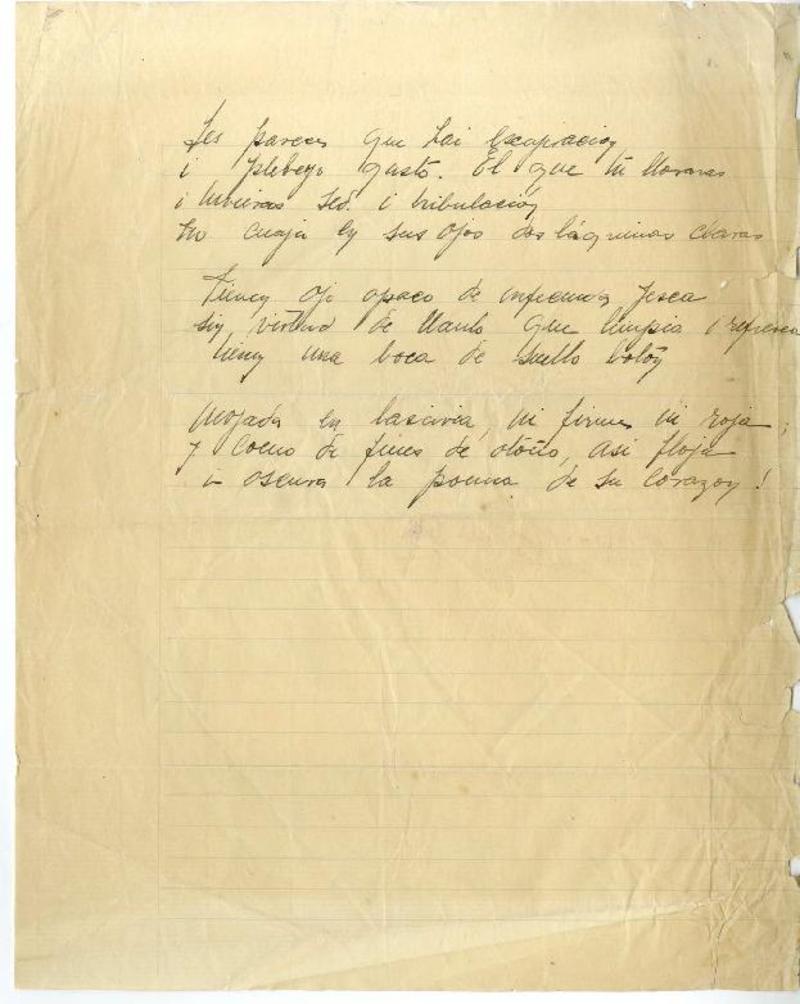 Les parece que hai exajeración
i plebeyo gusto. El que tú lloraras
i tuvieras sed i tribulación
no cuaja en sus ojos dos lágrimas claras
Tienen ojo opaco de infecunda yesca
sin virtud de llanto que limpia i refresca
tienen una boca de suelto botón
mojada en lascivia, ni firme ni roja;
y como de fines de otoño, así floja
i oscura la poma de su corazón!